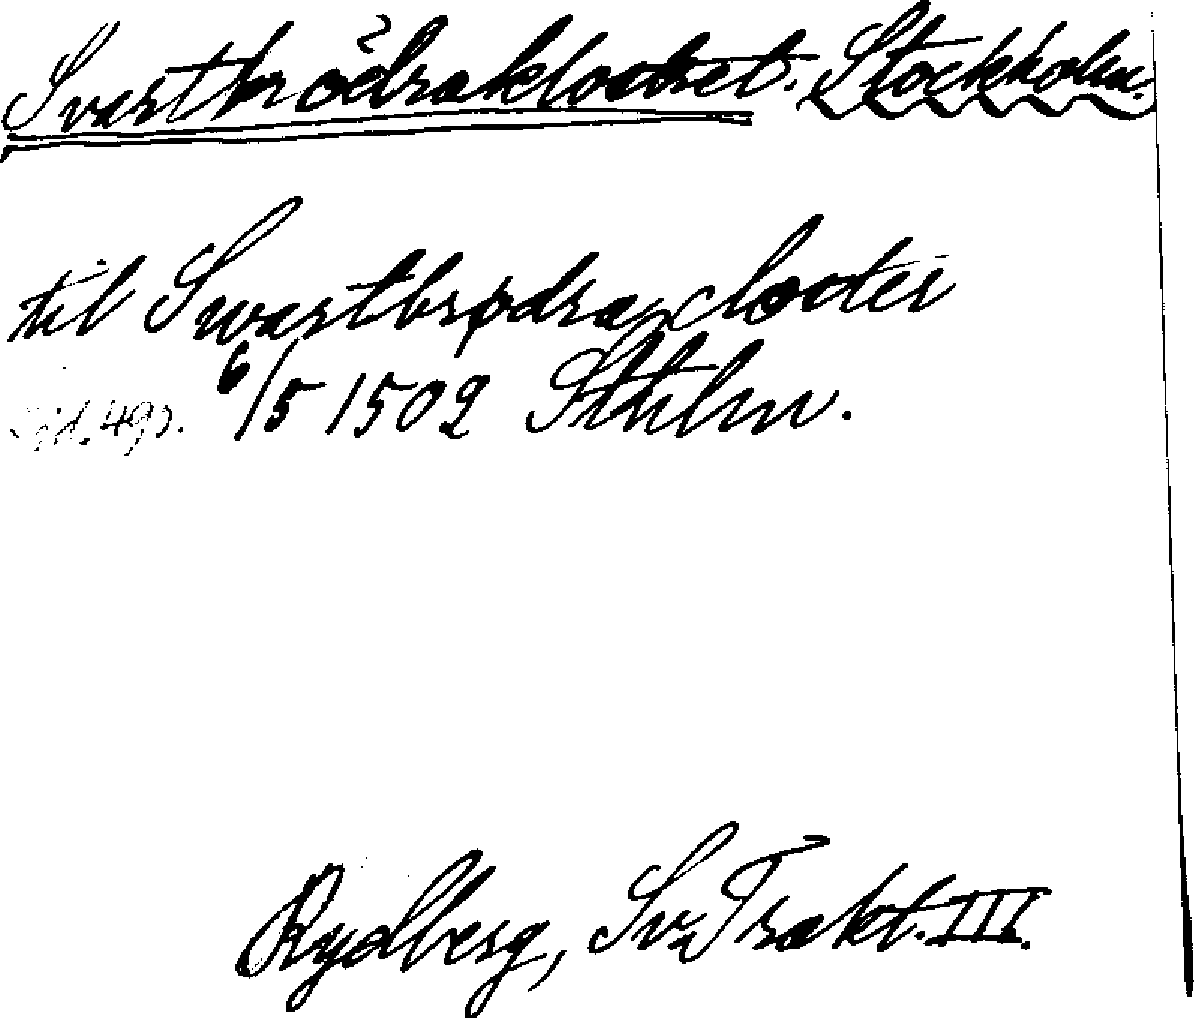 Svartbrödraklostret. Stockholm.
til Swartbrødra closter
6/5 1502 Sthlm.
Rydberg, Sv. Trakt. III.